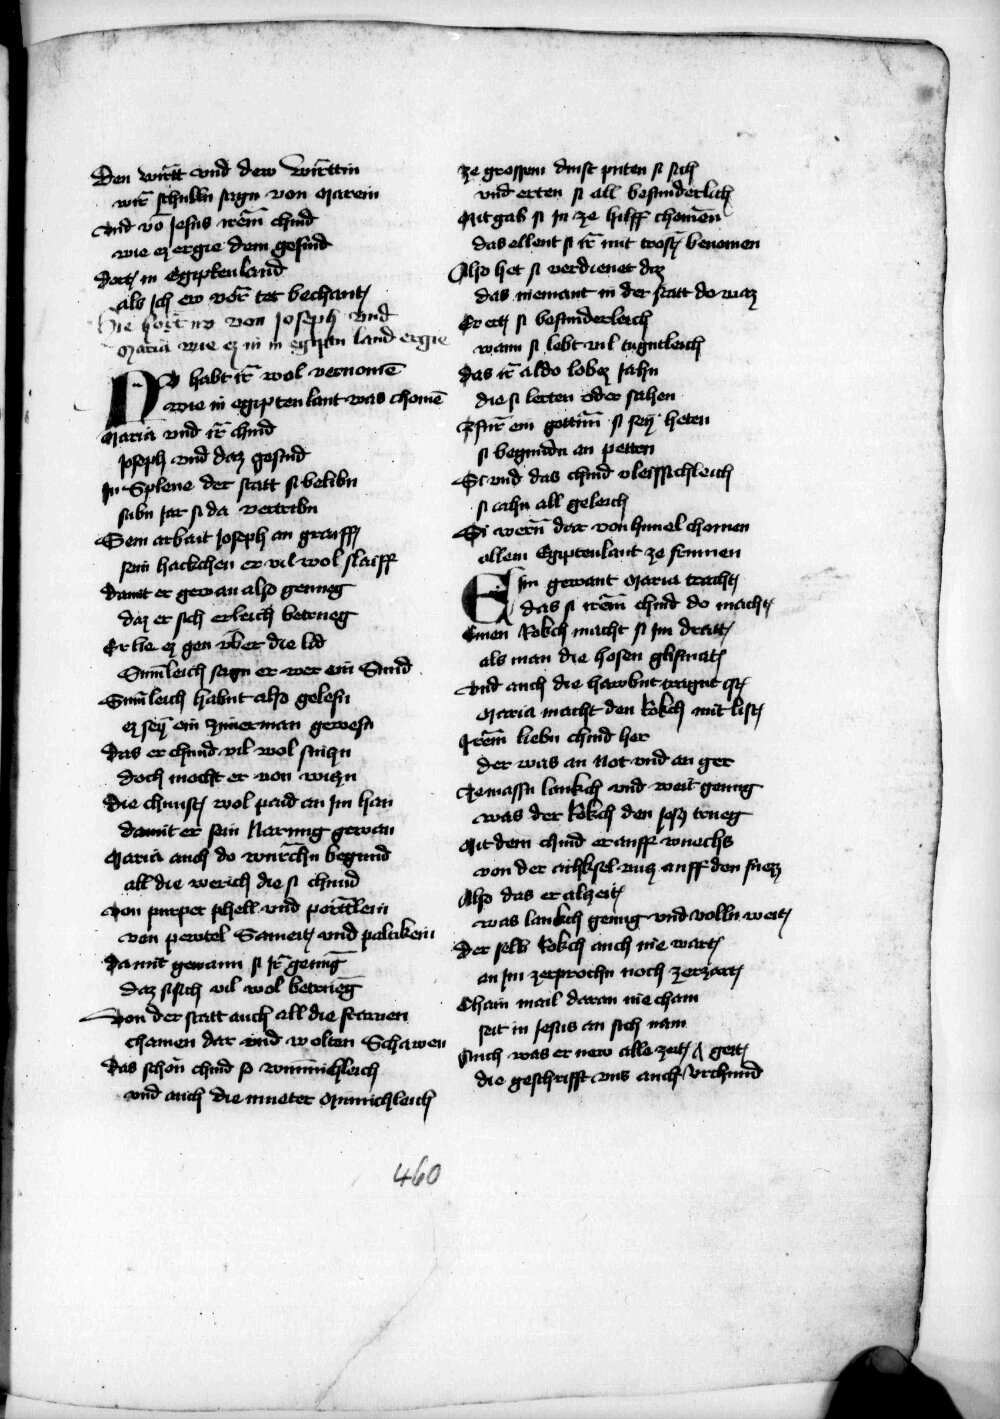 Den wirtt vnd dew wirttin
wir schulln sagn von Marein
vnd vo Jesus irem chind
wie ez ergie dem gesind
dort in Egiptenland
als ich ew vor tet bechant
Hie hort ir von Joseph vnd
Maria wie ez in in egiptn land ergie
Nv habt ir wol vernomē
wie in egipten lant was chomē
Maria vnd ir chind
Joseph vnd daz gesind
In Splene der statt si belibn
sibn Jar si da vertribn
Sein arbait Joseph an graiff
sein hackchen er vil wol slaiff
damit er gewan also genueg
daz er sich erleich betrueg
Er lie ez gen vber die lid
Sumleich sagn er wer ein Smid
Sumleich habnt also gelesn
ez sey ein zimerman gewesn
Das er chund vil wol smidn
doch mocht er von witzn
die chunst wol paid an im han
damit er sein Narung gewan
Maria auch do wurchn begund
all die werich die si chund
von purper phell vnd porttlein
von pewtel Sameit vnd paltikein
Damit gewann si ir genug
daz si sich vil wol betrueg
Von der statt auch all die frawen
chamen dar vnd wolten Schawen
das schon chind so wunnichleich
vnd auch die mueter Minnichleich
ze grossem dinst puten si sich
vnd erten si all besunderlich
Mit gab si in ze hilff chomen
das ellent si ir mit trost benomen
Also het si verdienet daz
das niemant in der statt do waz
Er ert si besunderleich
wann si lebt vil tugntleich
Das ir aldo lobez Jahn
die si herten oder sahen
Fur ein gottinn si sey heten
si begundn an petten
Si vnd das chind vleissichleich
si eahn all geleich
Si wern dar von himel chomen
allem Egiptenlant ze frumen
Ein gewant Maria tracht
das si irem chind do macht
Einen Rokch macht si im dratt
als man die hosen glisnat
vnd auch die hawbnt tragnt
Maria macht den Rokch mit list
Irem liebn chind her
der was an Not vnd an ger
ze massn lankch vnd weit genug
was der Rokch den Jesus trueg
Mit dem chind er auff wuechs
von der achksel vntz auff den fuezz
Also das er alzeit
was lankch genug vnd volln weit
Der selb Rokch auch nie wart
an im zerprochn noch zerzart
Chain mail daran nie cham
seit in Jesus an sich nam
Auch was er new alle zeit geit
die geschrifft vns auch vrchund
460